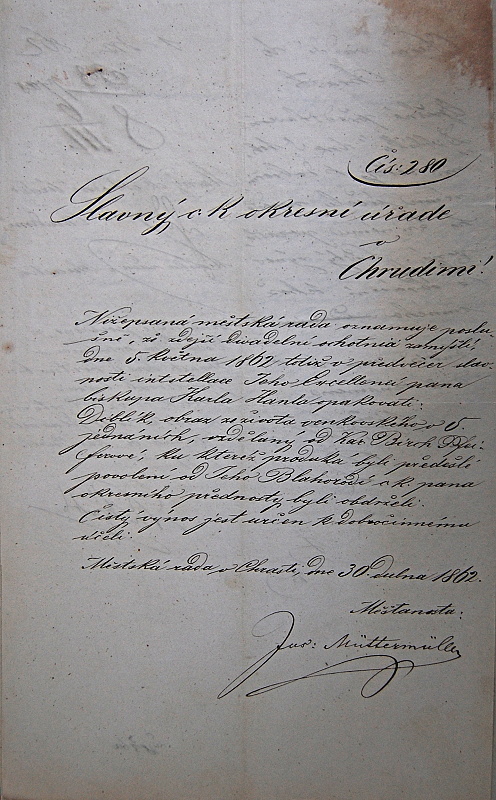 Čís: 280
Slavný c. k. okresní úřade
v
Chrudimi!
Nížepsaná městská rada oznamuje poslu-
šně, že zdejší divadelní ochotníci zamýšlí,
dne 5. května 1862 totiž v předvečer slav-
nosti intstellace Jeho Excellencí pana
biskupa Karla Hanla opakovati:
Diblík, obraz ze života venkovského v 5.
jednáních, vzdělaný od Birch Pfei-
ferové, ku kteréž produkci byli předešlé
povolení od Jeho Blahorodí c. k. pana
okresního přednosty, byli obdrželi.
Čistý výnos jest určen k dobročinnému
účeli.
Městská rada v Chrasti, dne 30 dubna 1862.
Měšťanosta:
Jos: Müttermüller